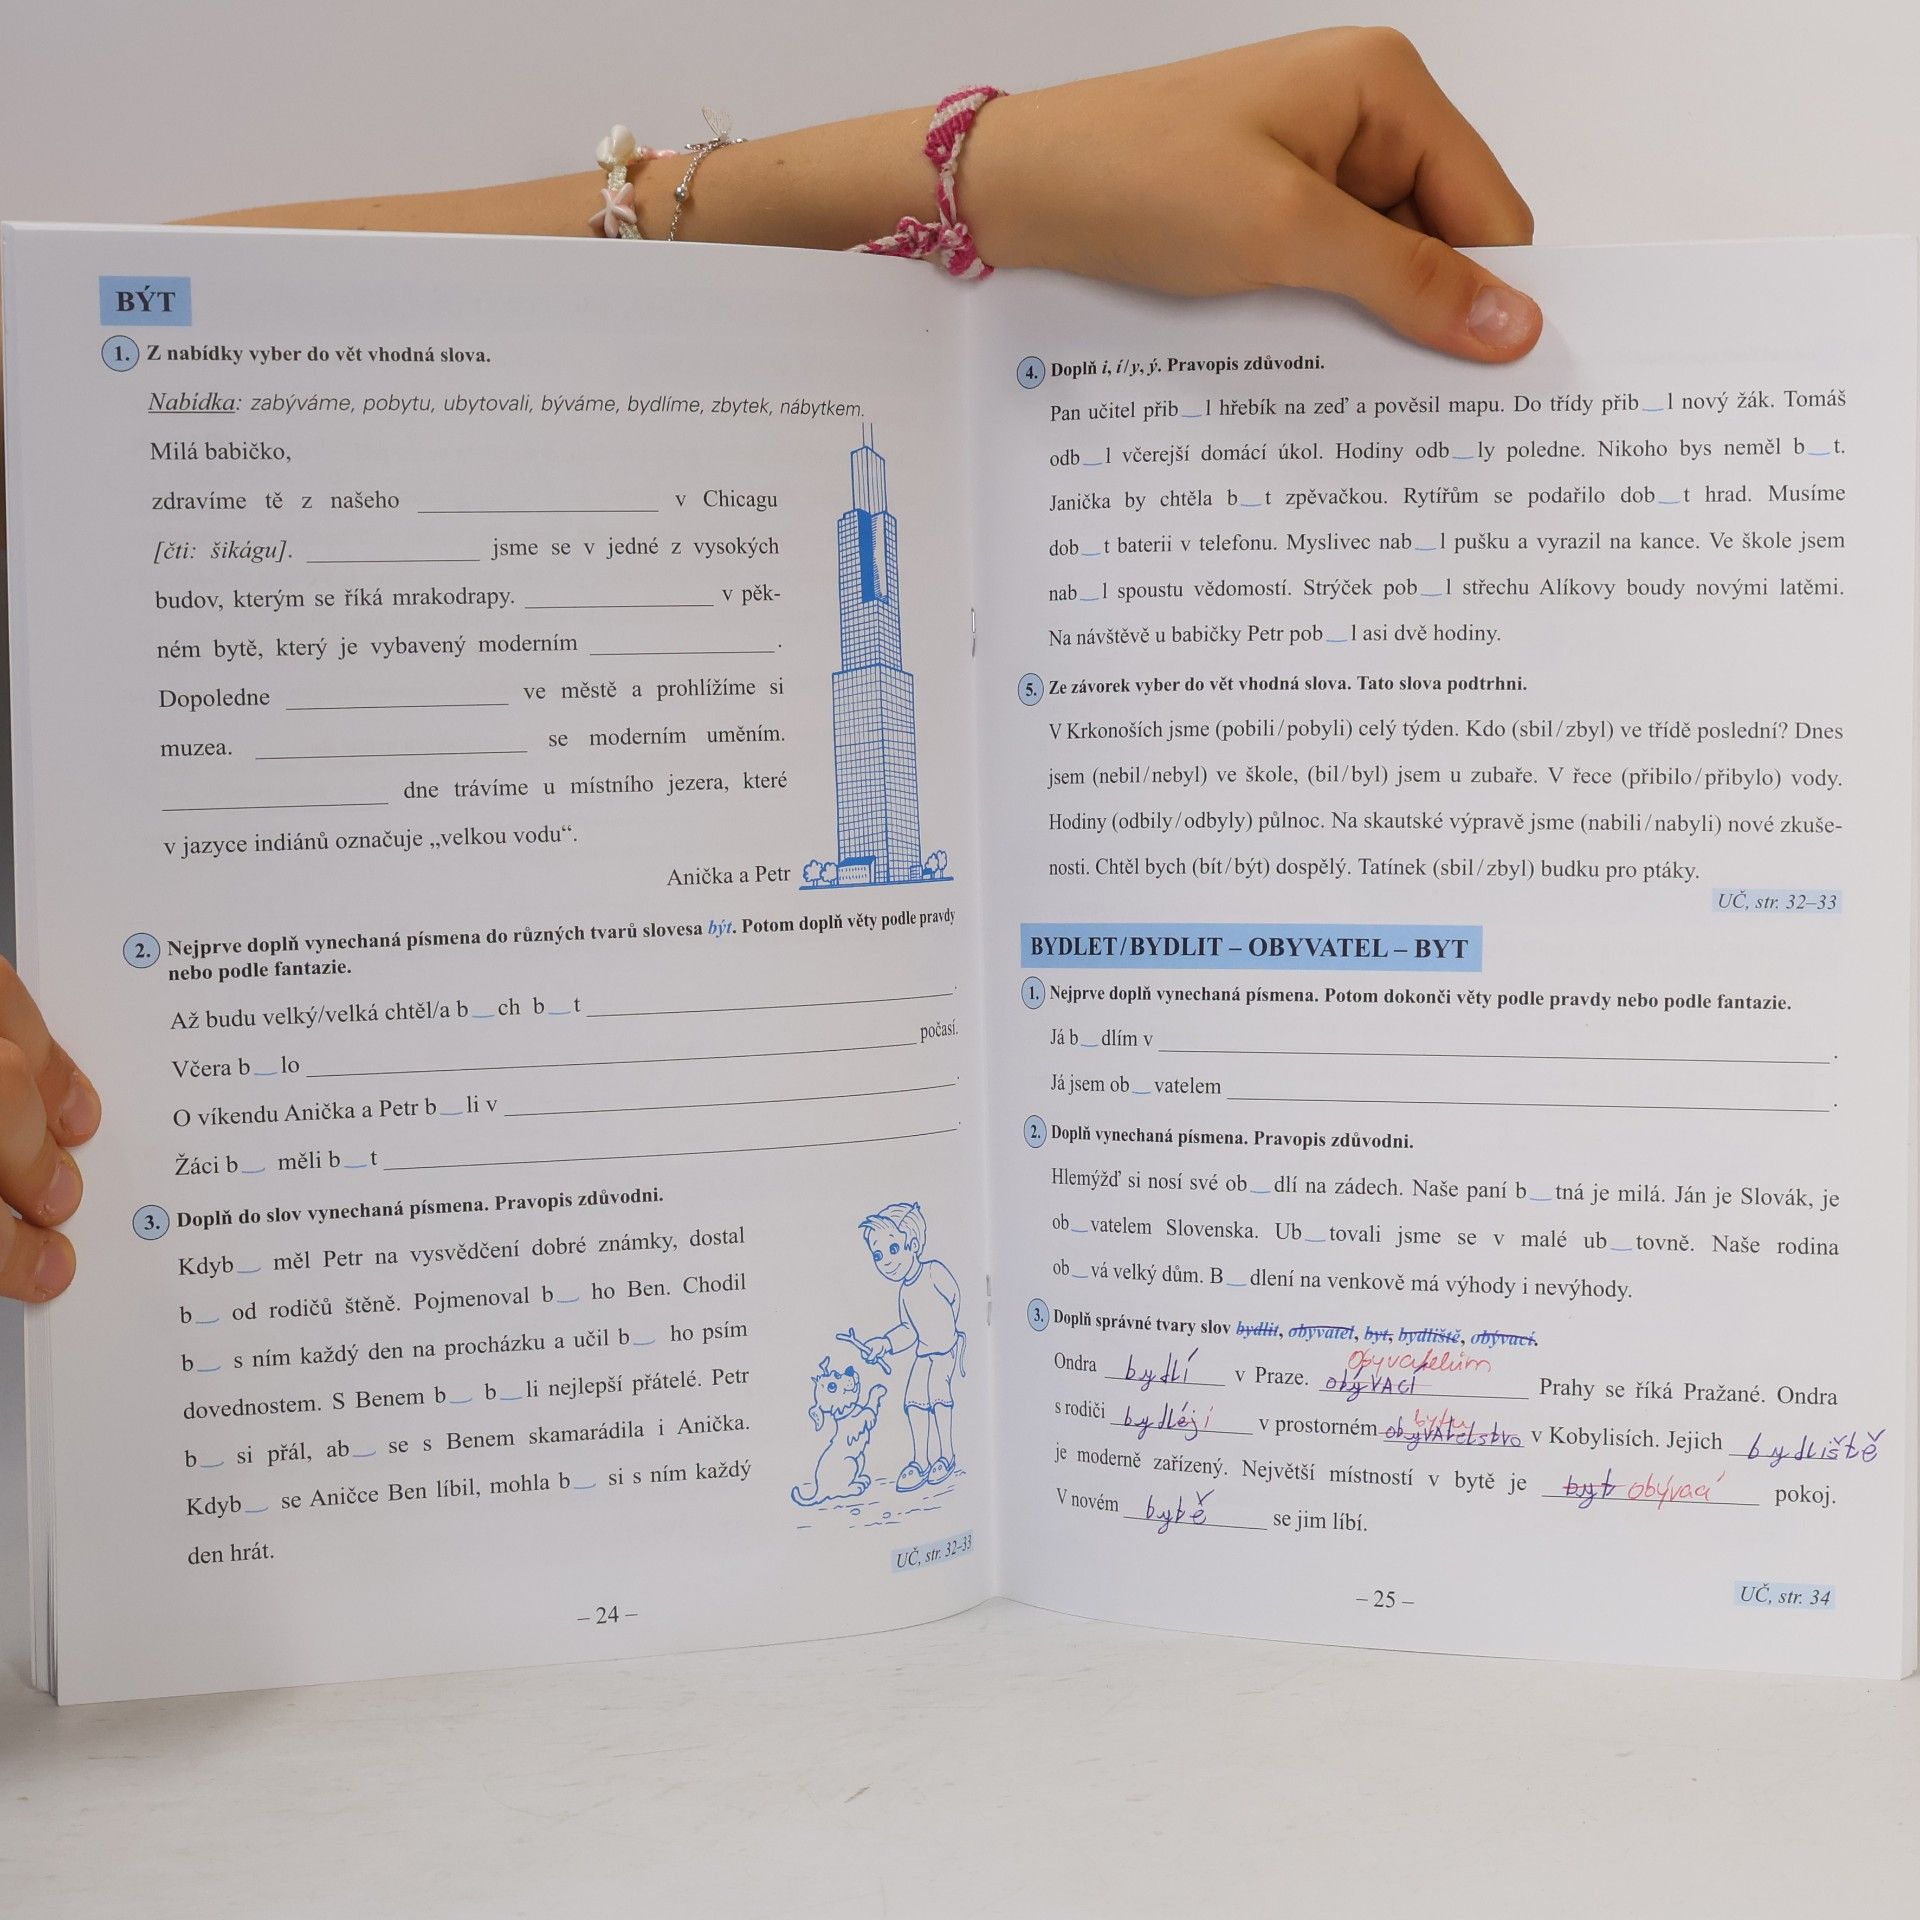 BÝT
1. Z nabídky vyber do vět vhodná slova.
Nabídka: zabýváme, pobytu, ubytovali, býváme, bydlíme, zbytek, nábytkem.
Milá babičko,
zdravíme tě z našeho ____ v Chicagu
[čti: šikágu]. ____ jsme se v jedné z vysokých
budov, kterým se říká mrakodrapy. ____ v pěk-
ném bytě, který je vybavený moderním ____.
Dopoledne ____ ve městě a prohlížíme si
muzea. ____ se moderním uměním.
____ dne trávíme u místního jezera, které
v jazyce indiánů označuje „velkou vodu“.
Anička a Petr
2. Nejprve doplň vynechaná písmena do různých tvarů slovesa být. Potom doplň věty podle pravdy
nebo podle fantazie.
Až budu velký/velká chtěl/a b_ch b_t ____.
Včera b_lo ____ počasí.
O víkendu Anička a Petr b_li v ____.
Žáci b_ měli b_t ____.
3. Doplň do slov vynechaná písmena. Pravopis zdůvodni.
Kdyb_ měl Petr na vysvědčení dobré známky, dostal
b_ od rodičů štěně. Pojmenoval b_ ho Ben. Chodil
b_ s ním každý den na procházku a učil b_ ho psím
dovednostem. S Benem b_ b_li nejlepší přátelé. Petr
b_ si přál, ab_ se s Benem skamarádila i Anička.
Kdyb_ se Aničce Ben líbil, mohla b_ si s ním každý
den hrát.
UČ, str. 32–33
– 24 –
4. Doplň i, í/y, ý. Pravopis zdůvodni.
Pan učitel přib_l hřebík na zeď a pověsil mapu. Do třídy přib_l nový žák. Tomáš
odb_l včerejší domácí úkol. Hodiny odb_ly poledne. Nikoho bys neměl b_t.
Janička by chtěla b_t zpěvačkou. Rytířům se podařilo dob_t hrad. Musíme
dob_t baterii v telefonu. Myslivec nab_l pušku a vyrazil na kance. Ve škole jsem
nab_l spoustu vědomostí. Strýček pob_l střechu Alíkovy boudy novými latěmi.
Na návštěvě u babičky Petr pob_l asi dvě hodiny.
5. Ze závorek vyber do vět vhodná slova. Tato slova podtrhni.
V Krkonoších jsme (pobili/pobyli) celý týden. Kdo (sbil/zbyl) ve třídě poslední? Dnes
jsem (nebil/nebyl) ve škole, (bil/byl) jsem u zubaře. V řece (přibilo/přibylo) vody.
Hodiny (odbily/odbyly) půlnoc. Na skautské výpravě jsme (nabili/nabyli) nové zkuše-
nosti. Chtěl bych (bít/být) dospělý. Tatínek (sbil/zbyl) budku pro ptáky.
UČ, str. 32–33
BYDLET/BYDLIT – OBYVATEL – BYT
1. Nejprve doplň vynechaná písmena. Potom dokonči věty podle pravdy nebo podle fantazie.
Já b_dlím v ____.
Já jsem ob_vatelem ____.
2. Doplň vynechaná písmena. Pravopis zdůvodni.
Hlemýžď si nosí své ob_dlí na zádech. Naše paní b_tná je milá. Ján je Slovák, je
ob_vatelem Slovenska. Ub_tovali jsme se v malé ub_tovně. Naše rodina
ob_vá velký dům. B_dlení na venkově má výhody i nevýhody.
3. Doplň správné tvary slov bydlit, obyvatel, byt, bydliště, obývací.
Obyvatelům
Ondra bydlí v Praze. obýVACÍ Prahy se říká Pražané. Ondra
bytu
s rodiči bydlejí v prostorném obyVAtelstvo v Kobylisích. Jejich bydliště
je moderně zařízený. Největší místností v bytě je byt obývací pokoj.
V novém bytě se jim líbí.
UČ, str. 34
– 25 –